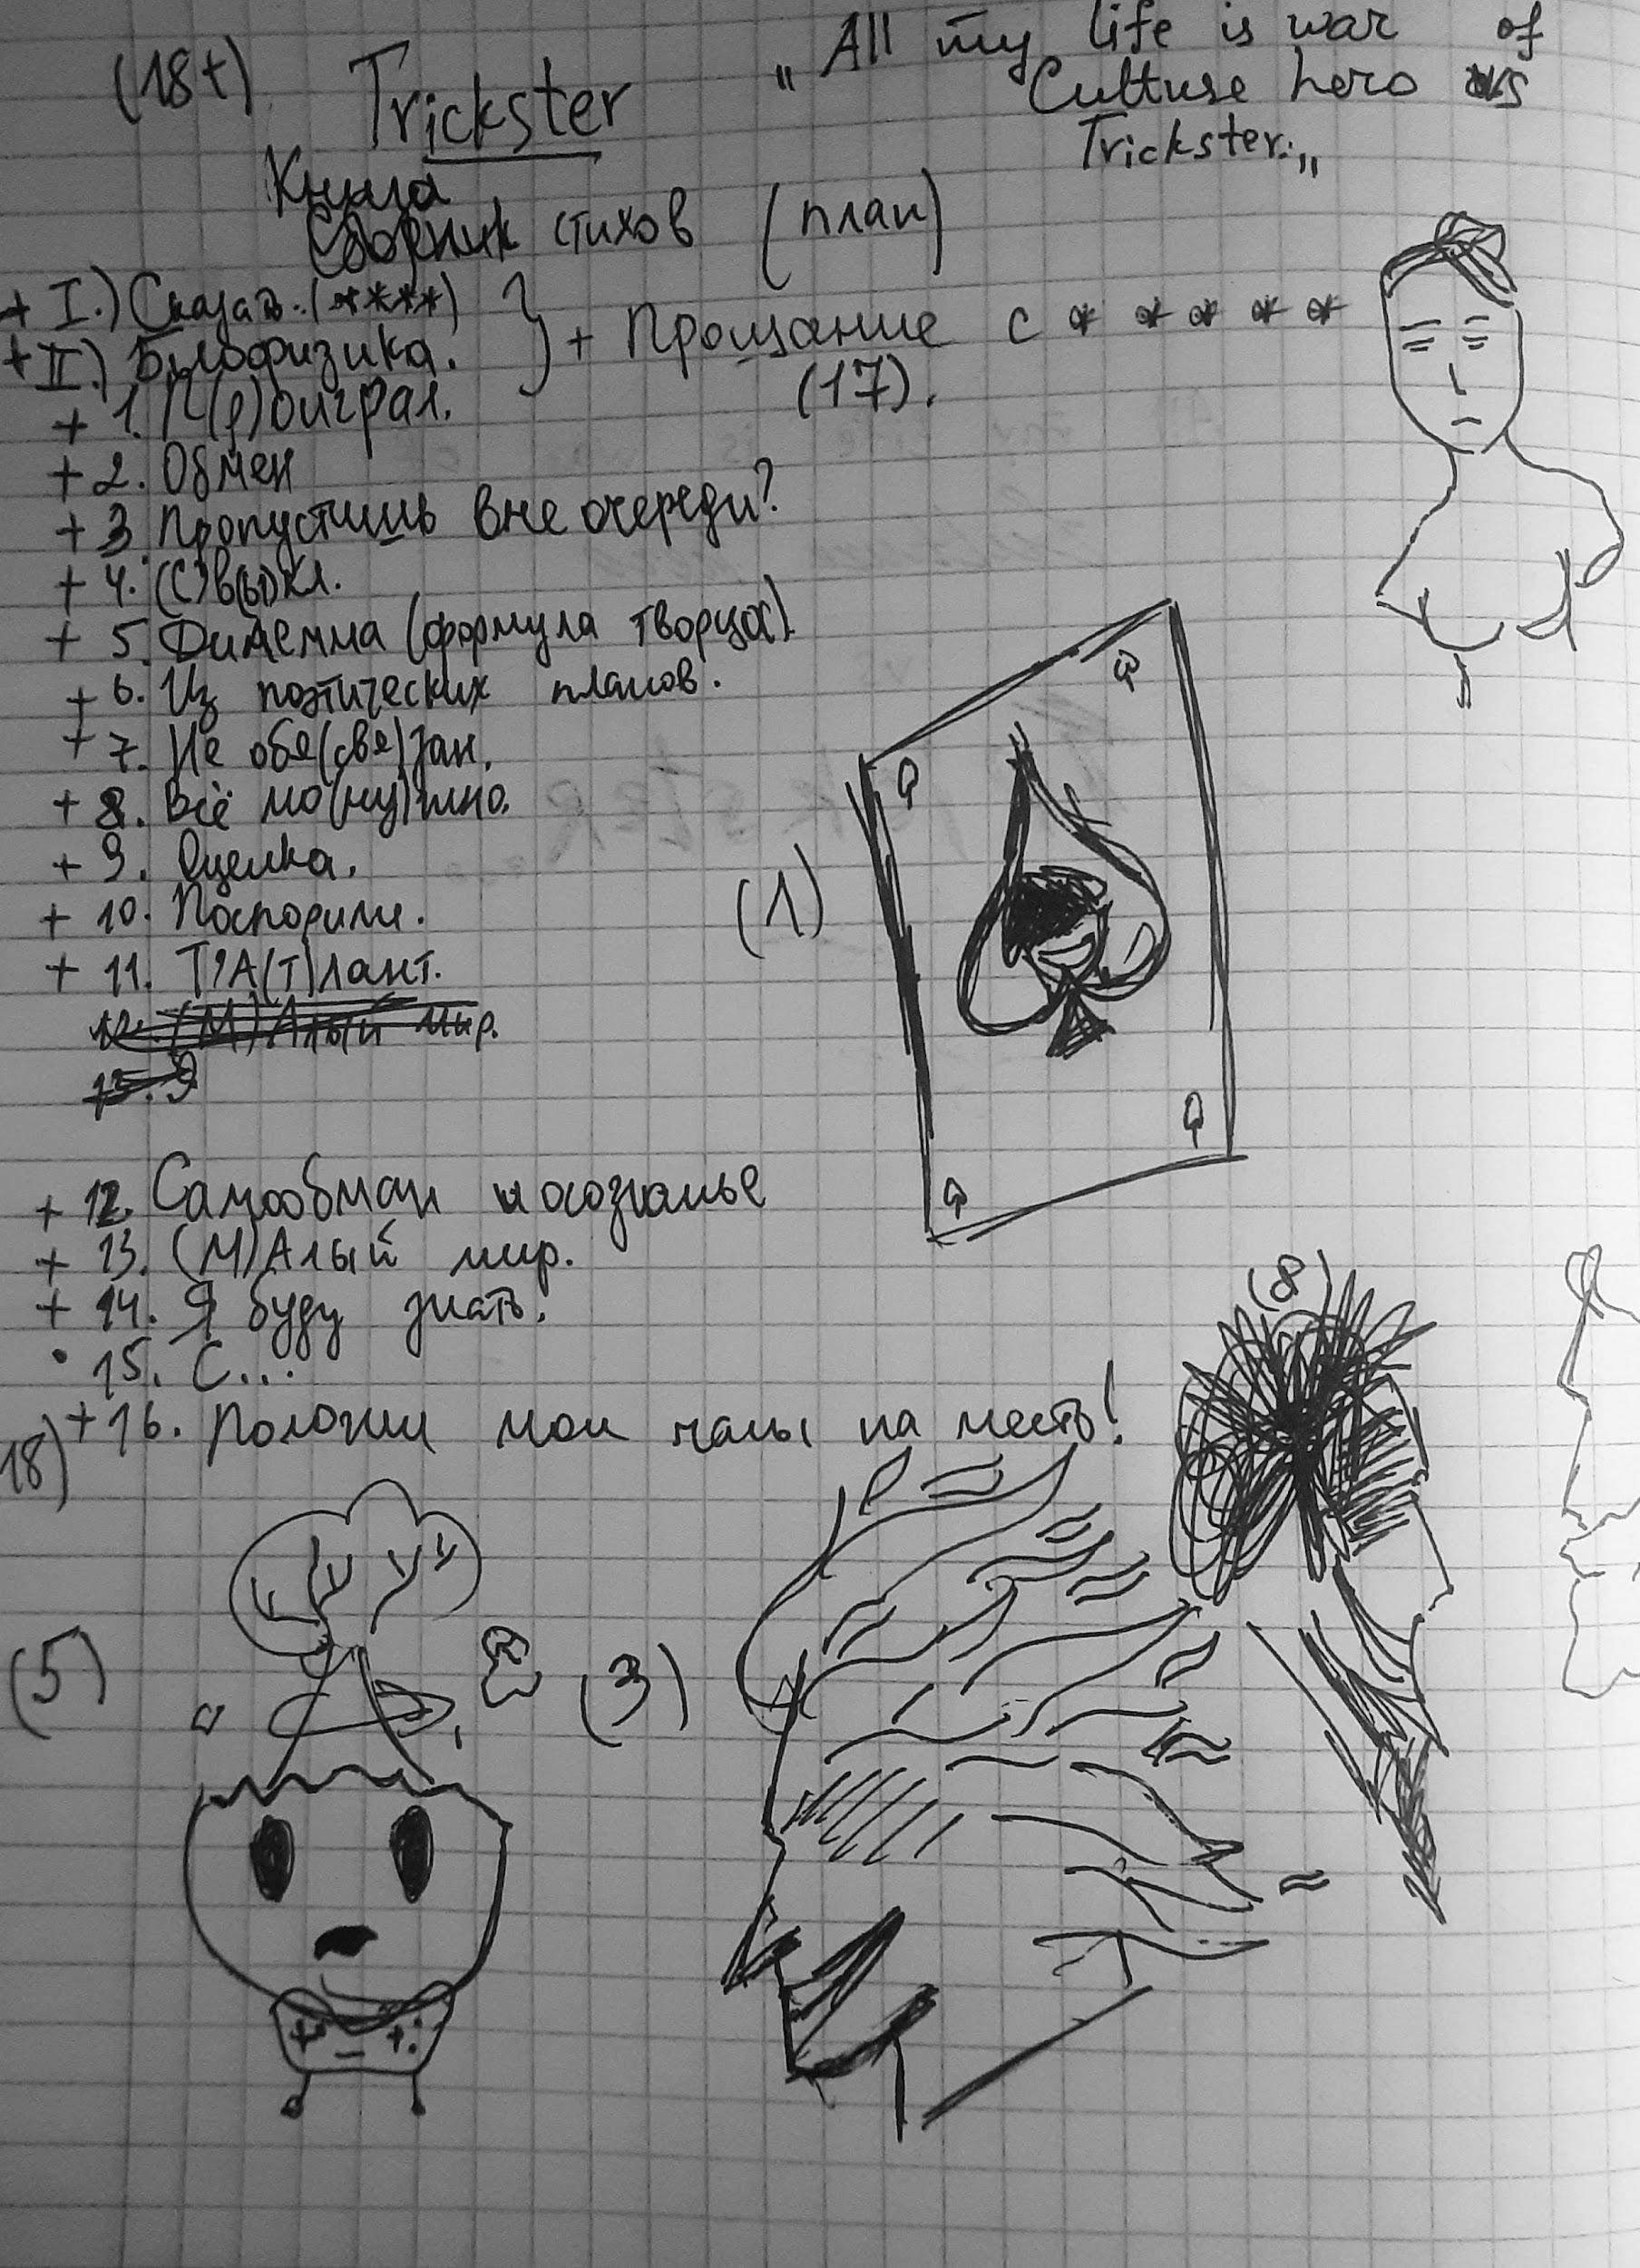 (18+) Trickster
„All my life is war of
Culture hero vs
Trickster.„
Книга
Сборник стихов (план)
+ I.) Сказать.(****)
+ II.) Билофизика. } + Прощание с * * * * *
(17).
+ 1. П(р)оиграл.
+ 2. Обмен
+ 3. Пропустишь вне очереди?
+ 4. (С)В(Ы)КЛ.
+ 5. Дилемма (формула творца)
+ 6. Из поэтических планов.
+ 7. Не обя(свя)зан.
+ 8. Всё мо(ну)жно.
+ 9. Оценка.
+ 10. Поспорили.
+ 11. Т'А(Т)лант.
12. (М)Алый мир.
13. Я
+ 12. Самообман и осознанье
+ 13. (М)Алый мир.
+ 14. Я буду знать.
• 15. С...
+ 16. Положи мои на месть!
18)
(1)
(8)
(5)
(3)